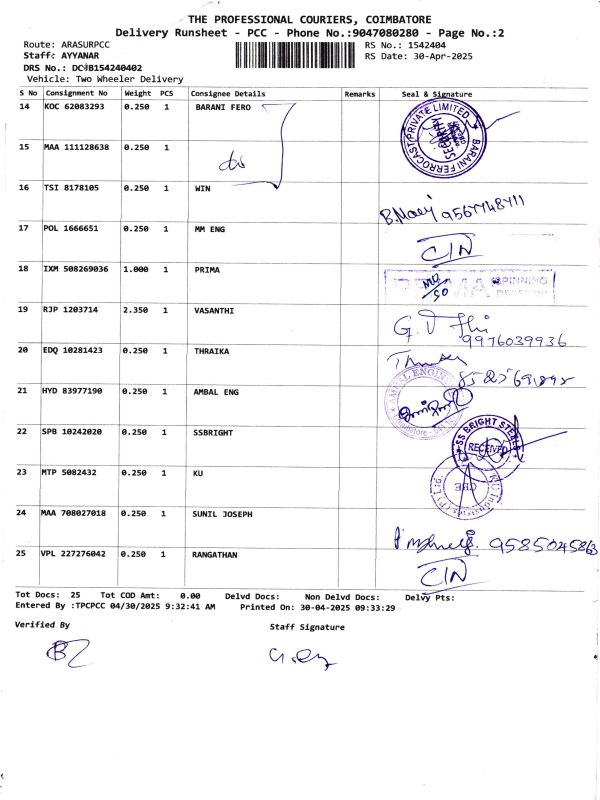 THE PROFESSIONAL COURIERS, COIMBATORE
Delivery Runsheet - PCC - Phone No.:9047080280 - Page No.:2
Route: ARASURPCC RS No.: 1542404
Staff: AYYANAR RS Date: 30-Apr-2025
DRS No.: DC#B154240402
Vehicle: Two Wheeler Delivery
S No Consignment No Weight PCS Consignee Details Remarks Seal & Signature
14 KOC 62083293 0.250 1 BARANI FERO BARANI FERROCAST PRIVATE LIMITED
15 MAA 111128638 0.250 1 do
16 TSI 8178105 0.250 1 WIN 9567748711
17 POL 1666651 0.250 1 MM ENG C/N
18 IXM 508269036 1.000 1 PRIMA PRIMA SPINNING
19 RJP 1203714 2.350 1 VASANTHI 9976039936
20 EDQ 10281423 0.250 1 THRAIKA
21 HYD 83977190 0.250 1 AMBAL ENG AMBAL
22 SPB 10242020 0.250 1 SSBRIGHT SS BRIGHT STEELS RECEIVED
23 MTP 5082432 0.250 1 KU CBE
24 MAA 708027018 0.250 1 SUNIL JOSEPH 9585045863
25 VPL 227276042 0.250 1 RANGATHAN C/N
Tot Docs: 25 Tot COD Amt: 0.00 Delvd Docs: Non Delvd Docs: Delvy Pts:
Entered By :TPCPCC 04/30/2025 9:32:41 AM Printed On: 30-04-2025 09:33:29
Verified By Staff Signature